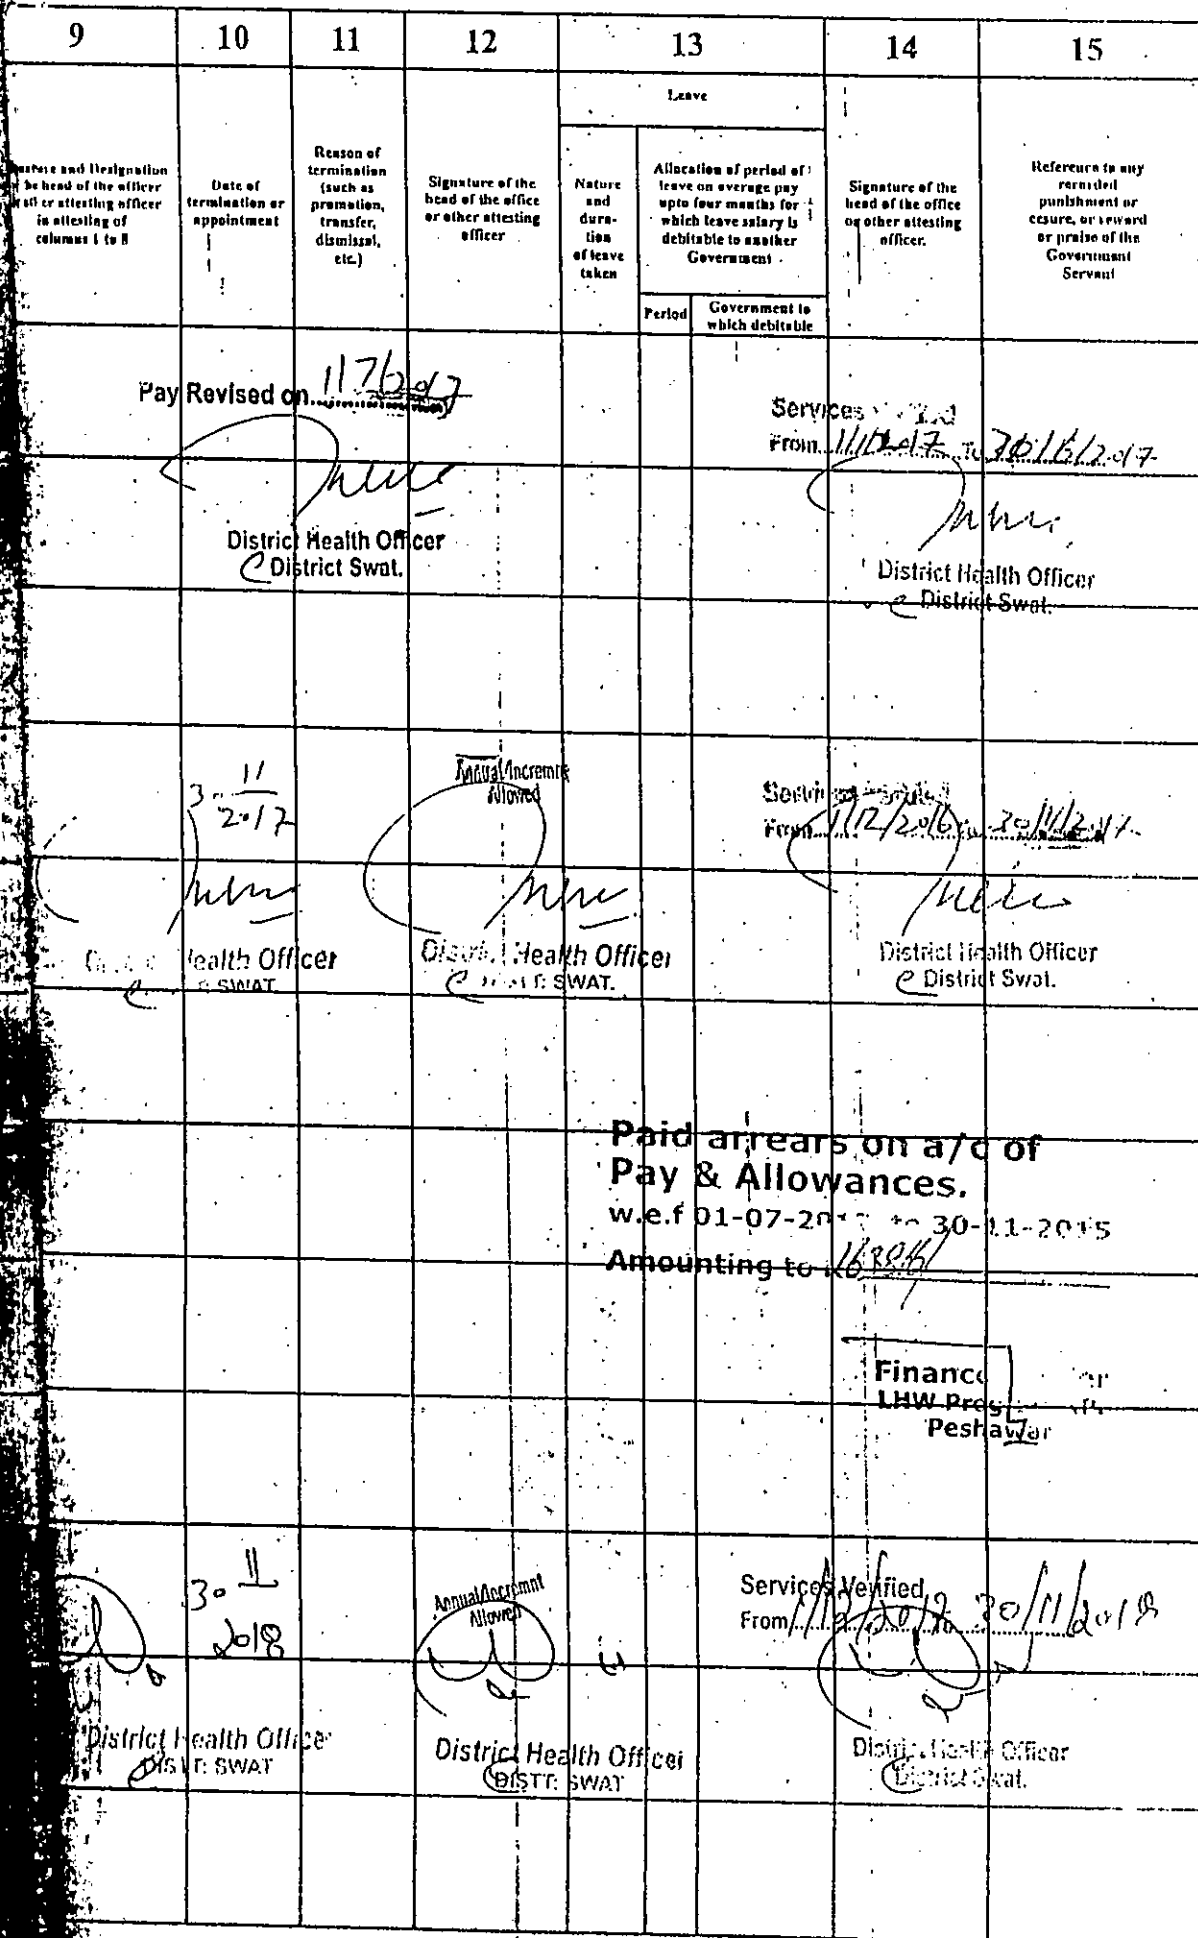 9 10 11 12 13 14 15
Leave
and Designation
head of the officer
or attesting officer
in attesting of
columns 1 to 8
Date of
termination or
appointment
Reason of
termination
(such as
promotion,
transfer,
dismissal,
etc.)
Signature of the
head of the office
or other attesting
officer
Nature
and
dura-
tion
of leave
taken
Allocation of period of
leave on average pay
upto four months for
which leave salary is
debitable to another
Government
Period
Government to
which debitable
Signature of the
head of the office
or other attesting
officer.
Reference to any
recorded
punishment or
cesure, or reward
or praise of the
Government
Servant
Pay Revised on 1/7/2017
District Health Officer
District Swat.
Services
From 1/1/2017 To 30/6/2017
District Health Officer
District Swat.
11
2017
Health Officer
SWAT
Annual Incremnt
Allowed
Health Officer
SWAT.
From 1/12/2016 30/11/2017
District Health Officer
District Swat.
Paid arrears on a/c of
Pay & Allowances.
w.e.f 01-07- to 30-11-2015
Amounting to
Finance
LHW
Peshawar
30 11
2018
District Health Officer
DISTT: SWAT
Annual Incremnt
Allowed
District Health Officer
DISTT: SWAT
Services Verified
From 1/12/2017 30/11/2018
District Health Officer
District Swat.